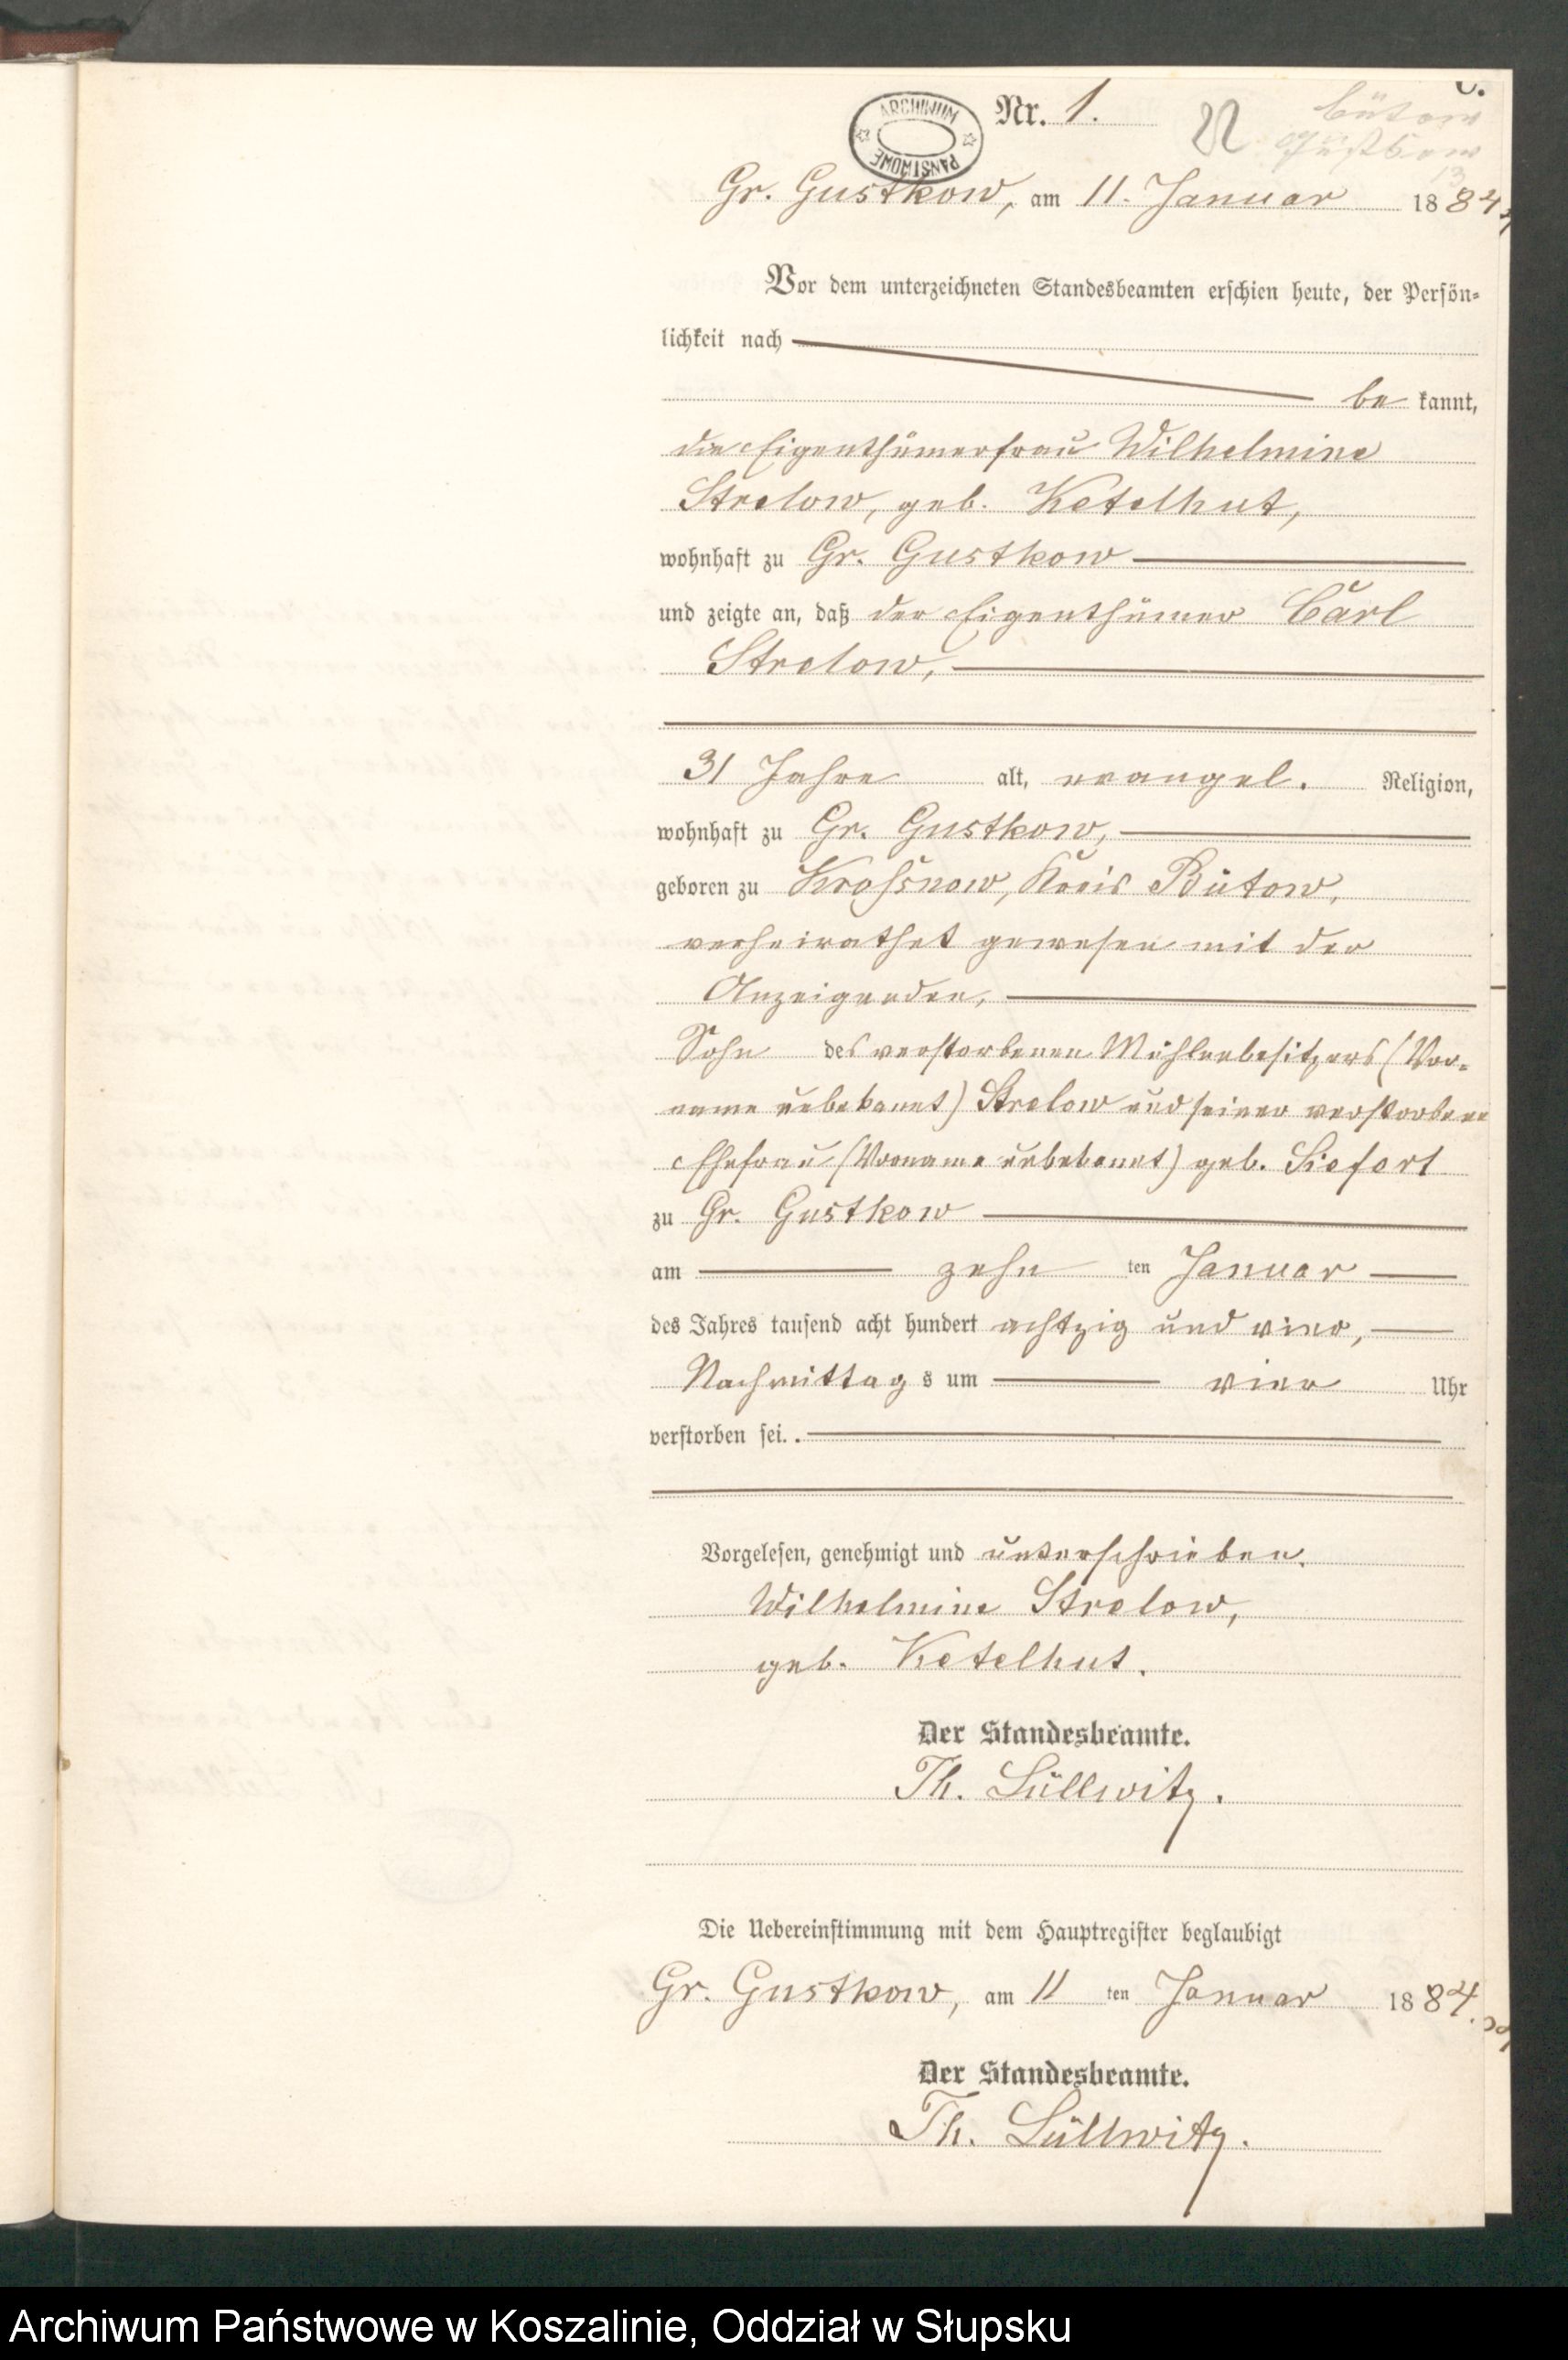 C.
ARCHIWUM PAŃSTWOWE
Nr. 1.
22
Bütow
Gustkow
13
Gr. Gustkow, am 11. Januar 1884.
Vor dem unterzeichneten Standesbeamten erschien heute, der Persön-
lichkeit nach
be kannt,
die Eigenthümerfrau Wilhelmine
Strelow, geb. Ketelhut,
wohnhaft zu Gr. Gustkow
und zeigte an, daß der Eigenthümer Carl
Strelow,
31 Jahre alt, evangel. Religion,
wohnhaft zu Gr. Gustkow,
geboren zu Kroßnow, Kreis Bütow,
verheirathet gewesen mit der
Anzeigenden,
Sohn des verstorbenen Mühlenbesitzers (Vor-
name unbekannt) Strelow und seiner verstorbenen
Ehefrau (Vorname unbekannt) geb. Siefert
zu Gr. Gustkow
am zehn ten Januar
des Jahres tausend acht hundert achtzig und vier,
Nachmittag s um vier Uhr
verstorben sei.
Vorgelesen, genehmigt und unterschrieben.
Wilhelmine Strelow,
geb. Ketelhut.
Der Standesbeamte.
Th. Lüllwitz.
Die Uebereinstimmung mit dem Hauptregister beglaubigt
Gr. Gustkow, am 11 ten Januar 1884.
Der Standesbeamte.
Th. Lüllwitz.
Archiwum Państwowe w Koszalinie, Oddział w Słupsku